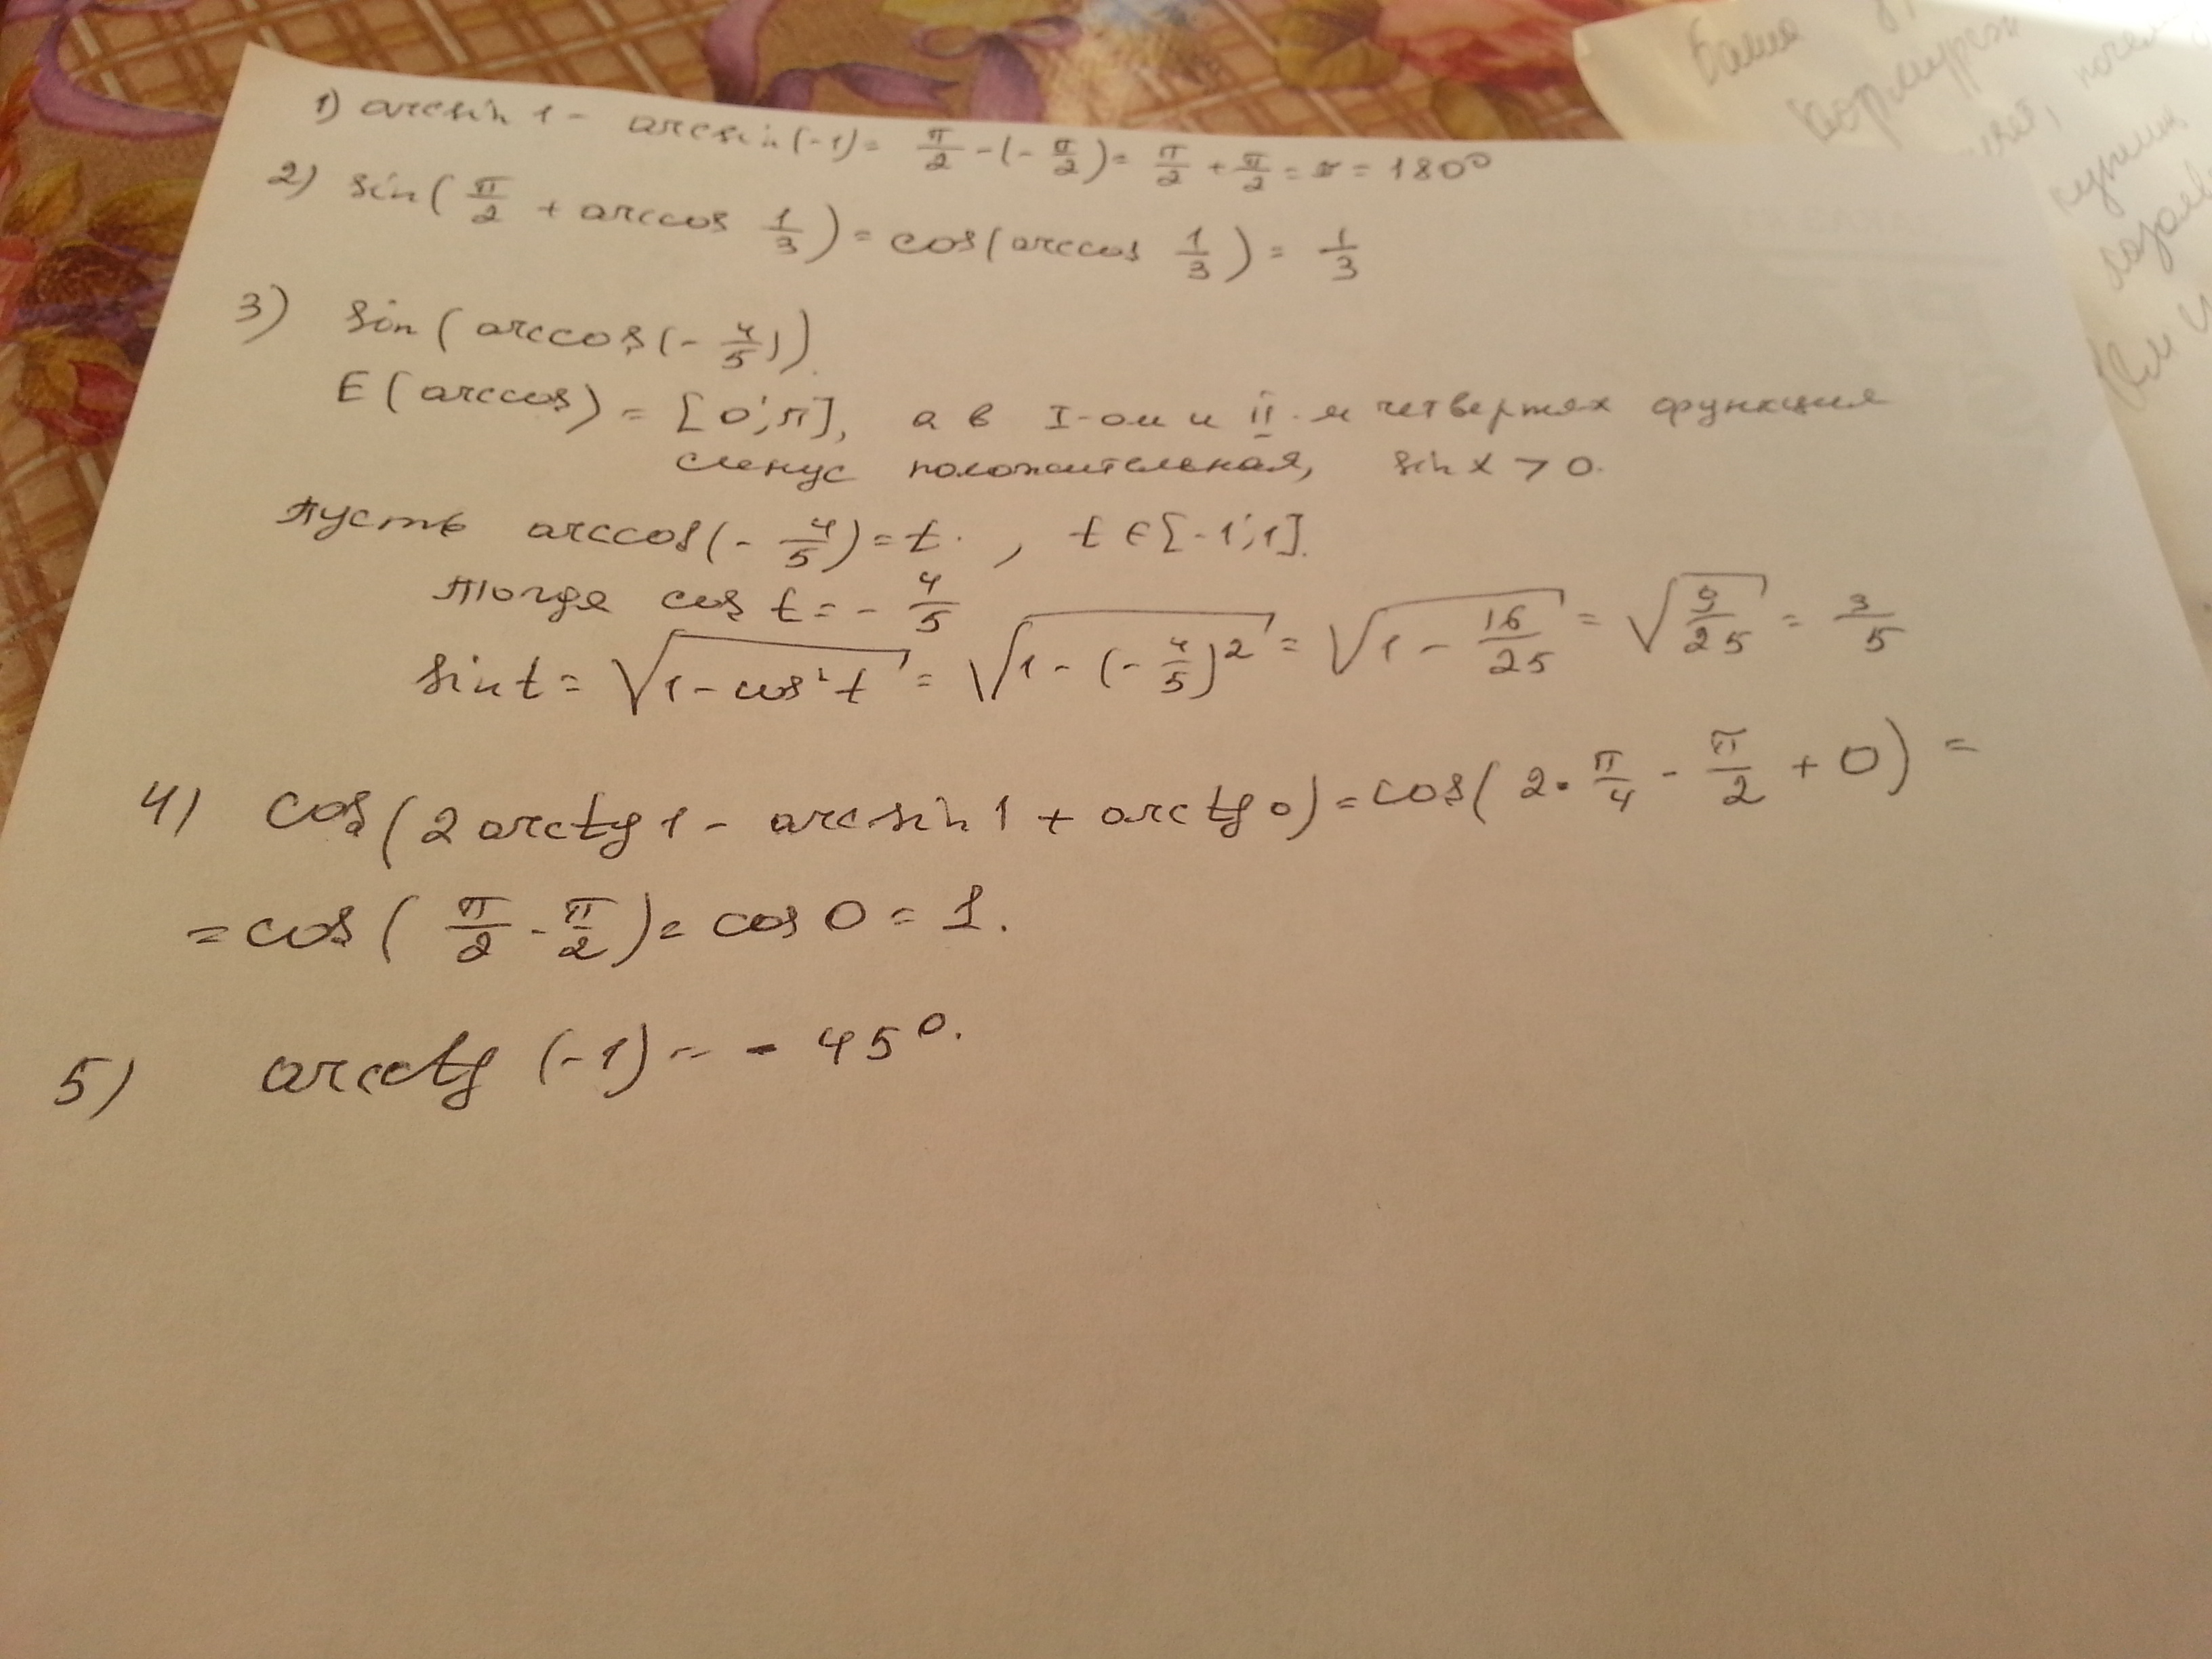 1) arcsin 1 - arcsin(-1) = π/2 - (-π/2) = π/2 + π/2 = π = 180°
2) sin(π/2 + arccos 1/3) = cos(arccos 1/3) = 1/3
3) sin(arccos(-4/5)).
E(arccos) = [0; π], а в I-ой и II-й четвертях функция
синус положительная, sin x > 0.
Пусть arccos(-4/5) = t. , t ∈ [-1; 1].
Тогда cos t = - 4/5
sin t = √(1 - cos²t) = √(1 - (-4/5)²) = √(1 - 16/25) = √(9/25) = 3/5
4) cos(2 arctg 1 - arcsin 1 + arctg 0) = cos(2 · π/4 - π/2 + 0) =
= cos(π/2 - π/2) = cos 0 = 1.
5) arcctg (-1) = - 45°.
Ваше